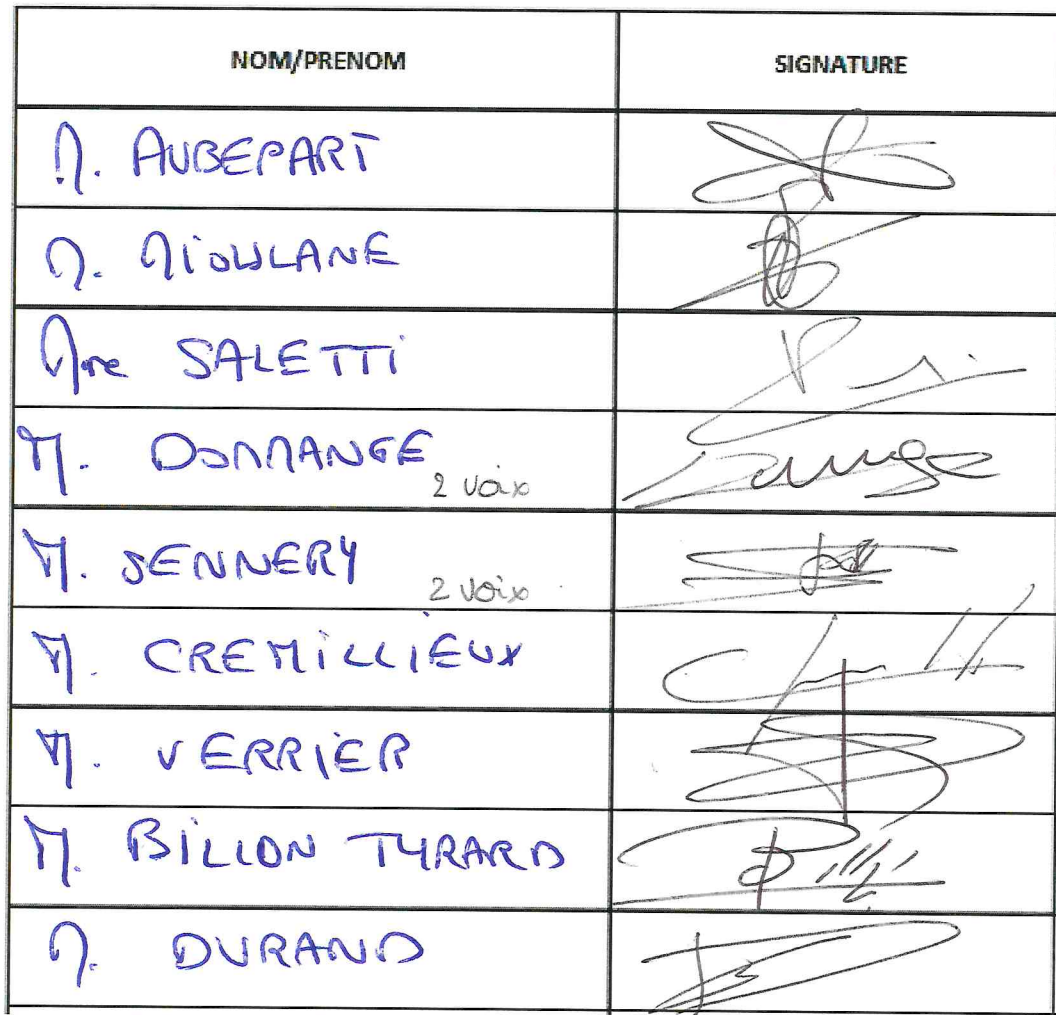 NOM/PRENOM SIGNATURE
M. AUBEPART
M. MIOULANE
Mme SALETTI
M. DOMMANGE 2 voix
M. JENNERY 2 voix
M. CREMILLIEUX
M. VERRIER
M. BILLON TYRARD
M. DURAND